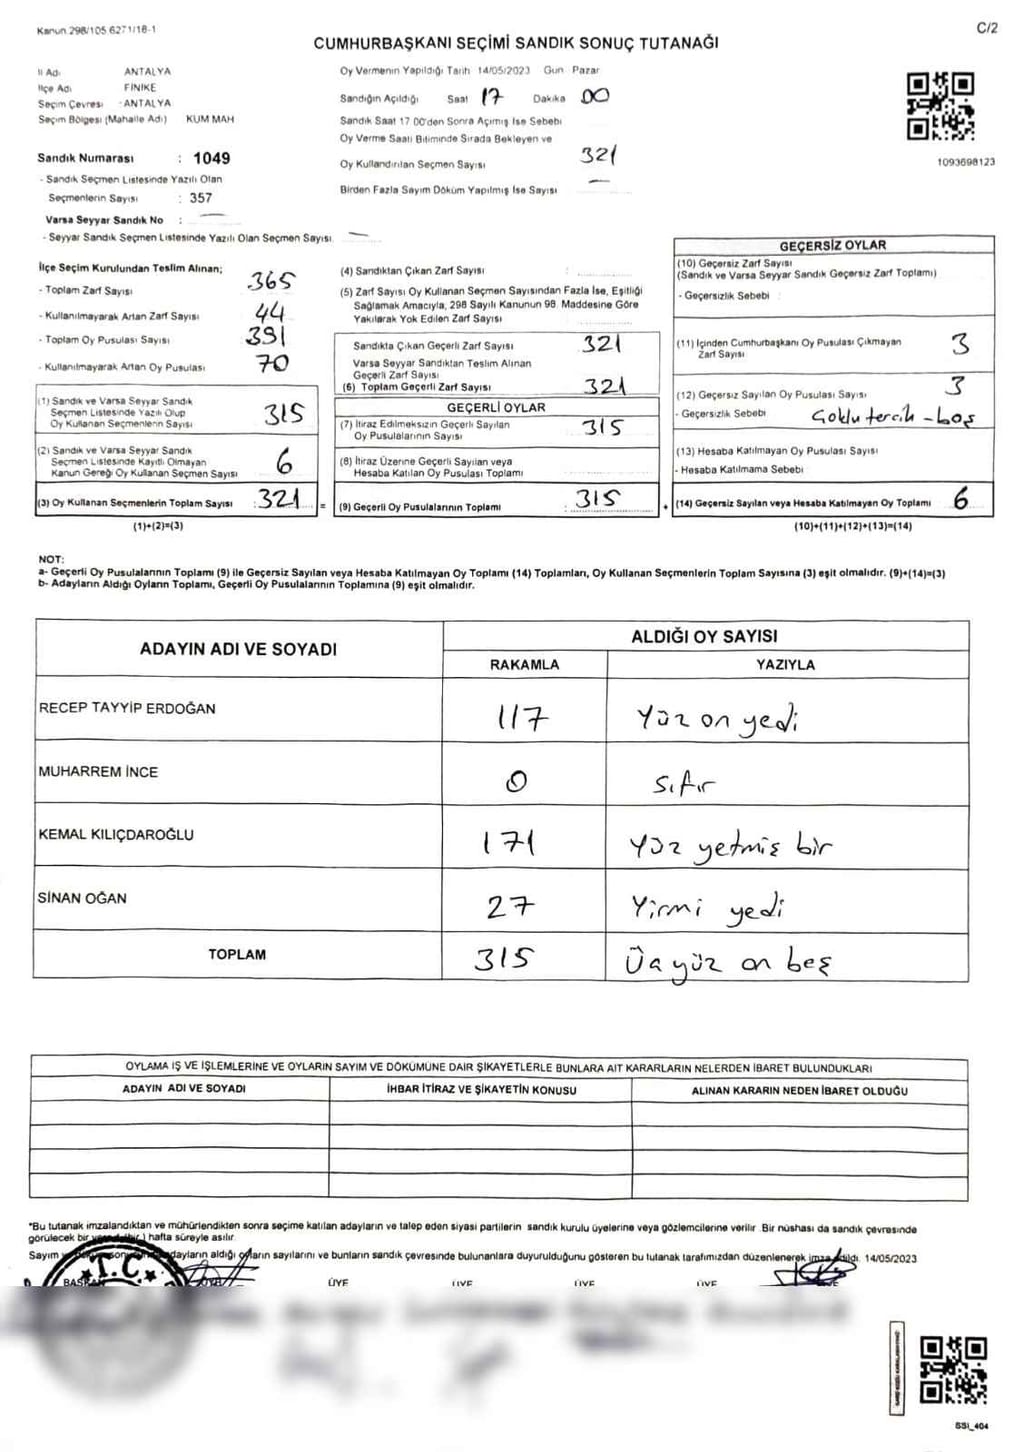 Kanun.298/105.6271/16-1
C/2
CUMHURBAŞKANI SEÇİMİ SANDIK SONUÇ TUTANAĞI
İl Adı ANTALYA
İlçe Adı FİNİKE
Seçim Çevresi : ANTALYA
Seçim Bölgesi (Mahalle Adı) KUM MAH
Sandık Numarası : 1049
- Sandık Seçmen Listesinde Yazılı Olan
Seçmenlerin Sayısı : 357
Varsa Seyyar Sandık No : —
- Seyyar Sandık Seçmen Listesinde Yazılı Olan Seçmen Sayısı —
Oy Vermenin Yapıldığı Tarih 14/05/2023 Gün Pazar
Sandığın Açıldığı Saat 17 Dakika 00
Sandık Saat 17 00'den Sonra Açımış İse Sebebi
Oy Verme Saati Bitiminde Sırada Bekleyen ve
Oy Kullandırılan Seçmen Sayısı 321
Birden Fazla Sayım Döküm Yapılmış İse Sayısı —
1093698123
İlçe Seçim Kurulundan Teslim Alınan;
- Toplam Zarf Sayısı 365
- Kullanılmayarak Artan Zarf Sayısı 44
- Toplam Oy Pusulası Sayısı 391
- Kullanılmayarak Artan Oy Pusulası 70
(1) Sandık ve Varsa Seyyar Sandık
Seçmen Listesinde Yazılı Olup
Oy Kullanan Seçmenlerin Sayısı 315
(2) Sandık ve Varsa Seyyar Sandık
Seçmen Listesinde Kayıtlı Olmayan
Kanun Gereği Oy Kullanan Seçmen Sayısı 6
(3) Oy Kullanan Seçmenlerin Toplam Sayısı : 321 =
(1)+(2)=(3)
(4) Sandıktan Çıkan Zarf Sayısı :
(5) Zarf Sayısı Oy Kullanan Seçmen Sayısından Fazla İse, Eşitliği
Sağlamak Amacıyla, 298 Sayılı Kanunun 98. Maddesine Göre
Yakılarak Yok Edilen Zarf Sayısı
Sandıkta Çıkan Geçerli Zarf Sayısı 321
Varsa Seyyar Sandıktan Teslim Alınan
Geçerli Zarf Sayısı
(6) Toplam Geçerli Zarf Sayısı 321
GEÇERLİ OYLAR
(7) İtiraz Edilmeksizin Geçerli Sayılan
Oy Pusulalarının Sayısı 315
(8) İtiraz Üzerine Geçerli Sayılan veya
Hesaba Katılan Oy Pusulası Toplamı
(9) Geçerli Oy Pusulalarının Toplamı : 315 +
GEÇERSİZ OYLAR
(10) Geçersiz Zarf Sayısı
(Sandık ve Varsa Seyyar Sandık Geçersiz Zarf Toplamı)
- Geçersizlik Sebebi :
(11) İçinden Cumhurbaşkanı Oy Pusulası Çıkmayan
Zarf Sayısı 3
(12) Geçersiz Sayılan Oy Pusulası Sayısı 3
- Geçersizlik Sebebi Çoklu tercih - boş
(13) Hesaba Katılmayan Oy Pusulası Sayısı
- Hesaba Katılmama Sebebi
(14) Geçersiz Sayılan veya Hesaba Katılmayan Oy Toplamı 6
(10)+(11)+(12)+(13)=(14)
NOT:
a- Geçerli Oy Pusulalarının Toplamı (9) ile Geçersiz Sayılan veya Hesaba Katılmayan Oy Toplamı (14) Toplamları, Oy Kullanan Seçmenlerin Toplam Sayısına (3) eşit olmalıdır. (9)+(14)=(3)
b- Adayların Aldığı Oyların Toplamı, Geçerli Oy Pusulalarının Toplamına (9) eşit olmalıdır.
ADAYIN ADI VE SOYADI ALDIĞI OY SAYISI
RAKAMLA YAZIYLA
RECEP TAYYİP ERDOĞAN 117 Yüz on yedi
MUHARREM İNCE 0 sıfır
KEMAL KILIÇDAROĞLU 171 Yüz yetmiş bir
SİNAN OĞAN 27 Yirmi yedi
TOPLAM 315 Üçyüz on beş
OYLAMA İŞ VE İŞLEMLERİNE VE OYLARIN SAYIM VE DÖKÜMÜNE DAİR ŞİKAYETLERLE BUNLARA AİT KARARLARIN NELERDEN İBARET BULUNDUKLARI
ADAYIN ADI VE SOYADI İHBAR İTİRAZ VE ŞİKAYETİN KONUSU ALINAN KARARIN NEDEN İBARET OLDUĞU
*Bu tutanak imzalandıktan ve mühürlendikten sonra seçime katılan adayların ve talep eden siyasi partilerin sandık kurulu üyelerine veya gözlemcilerine verilir. Bir nüshası da sandık çevresinde
görülecek bir hafta süreyle asılır.
Sayım adayların aldığı oyların sayılarını ve bunların sandık çevresinde bulunanlara duyurulduğunu gösteren bu tutanak tarafımızdan düzenlenerek imza edildi. 14/05/2023
T.C.
BAŞKAN ÜYE ÜYE ÜYE ÜYE
SSİ_404